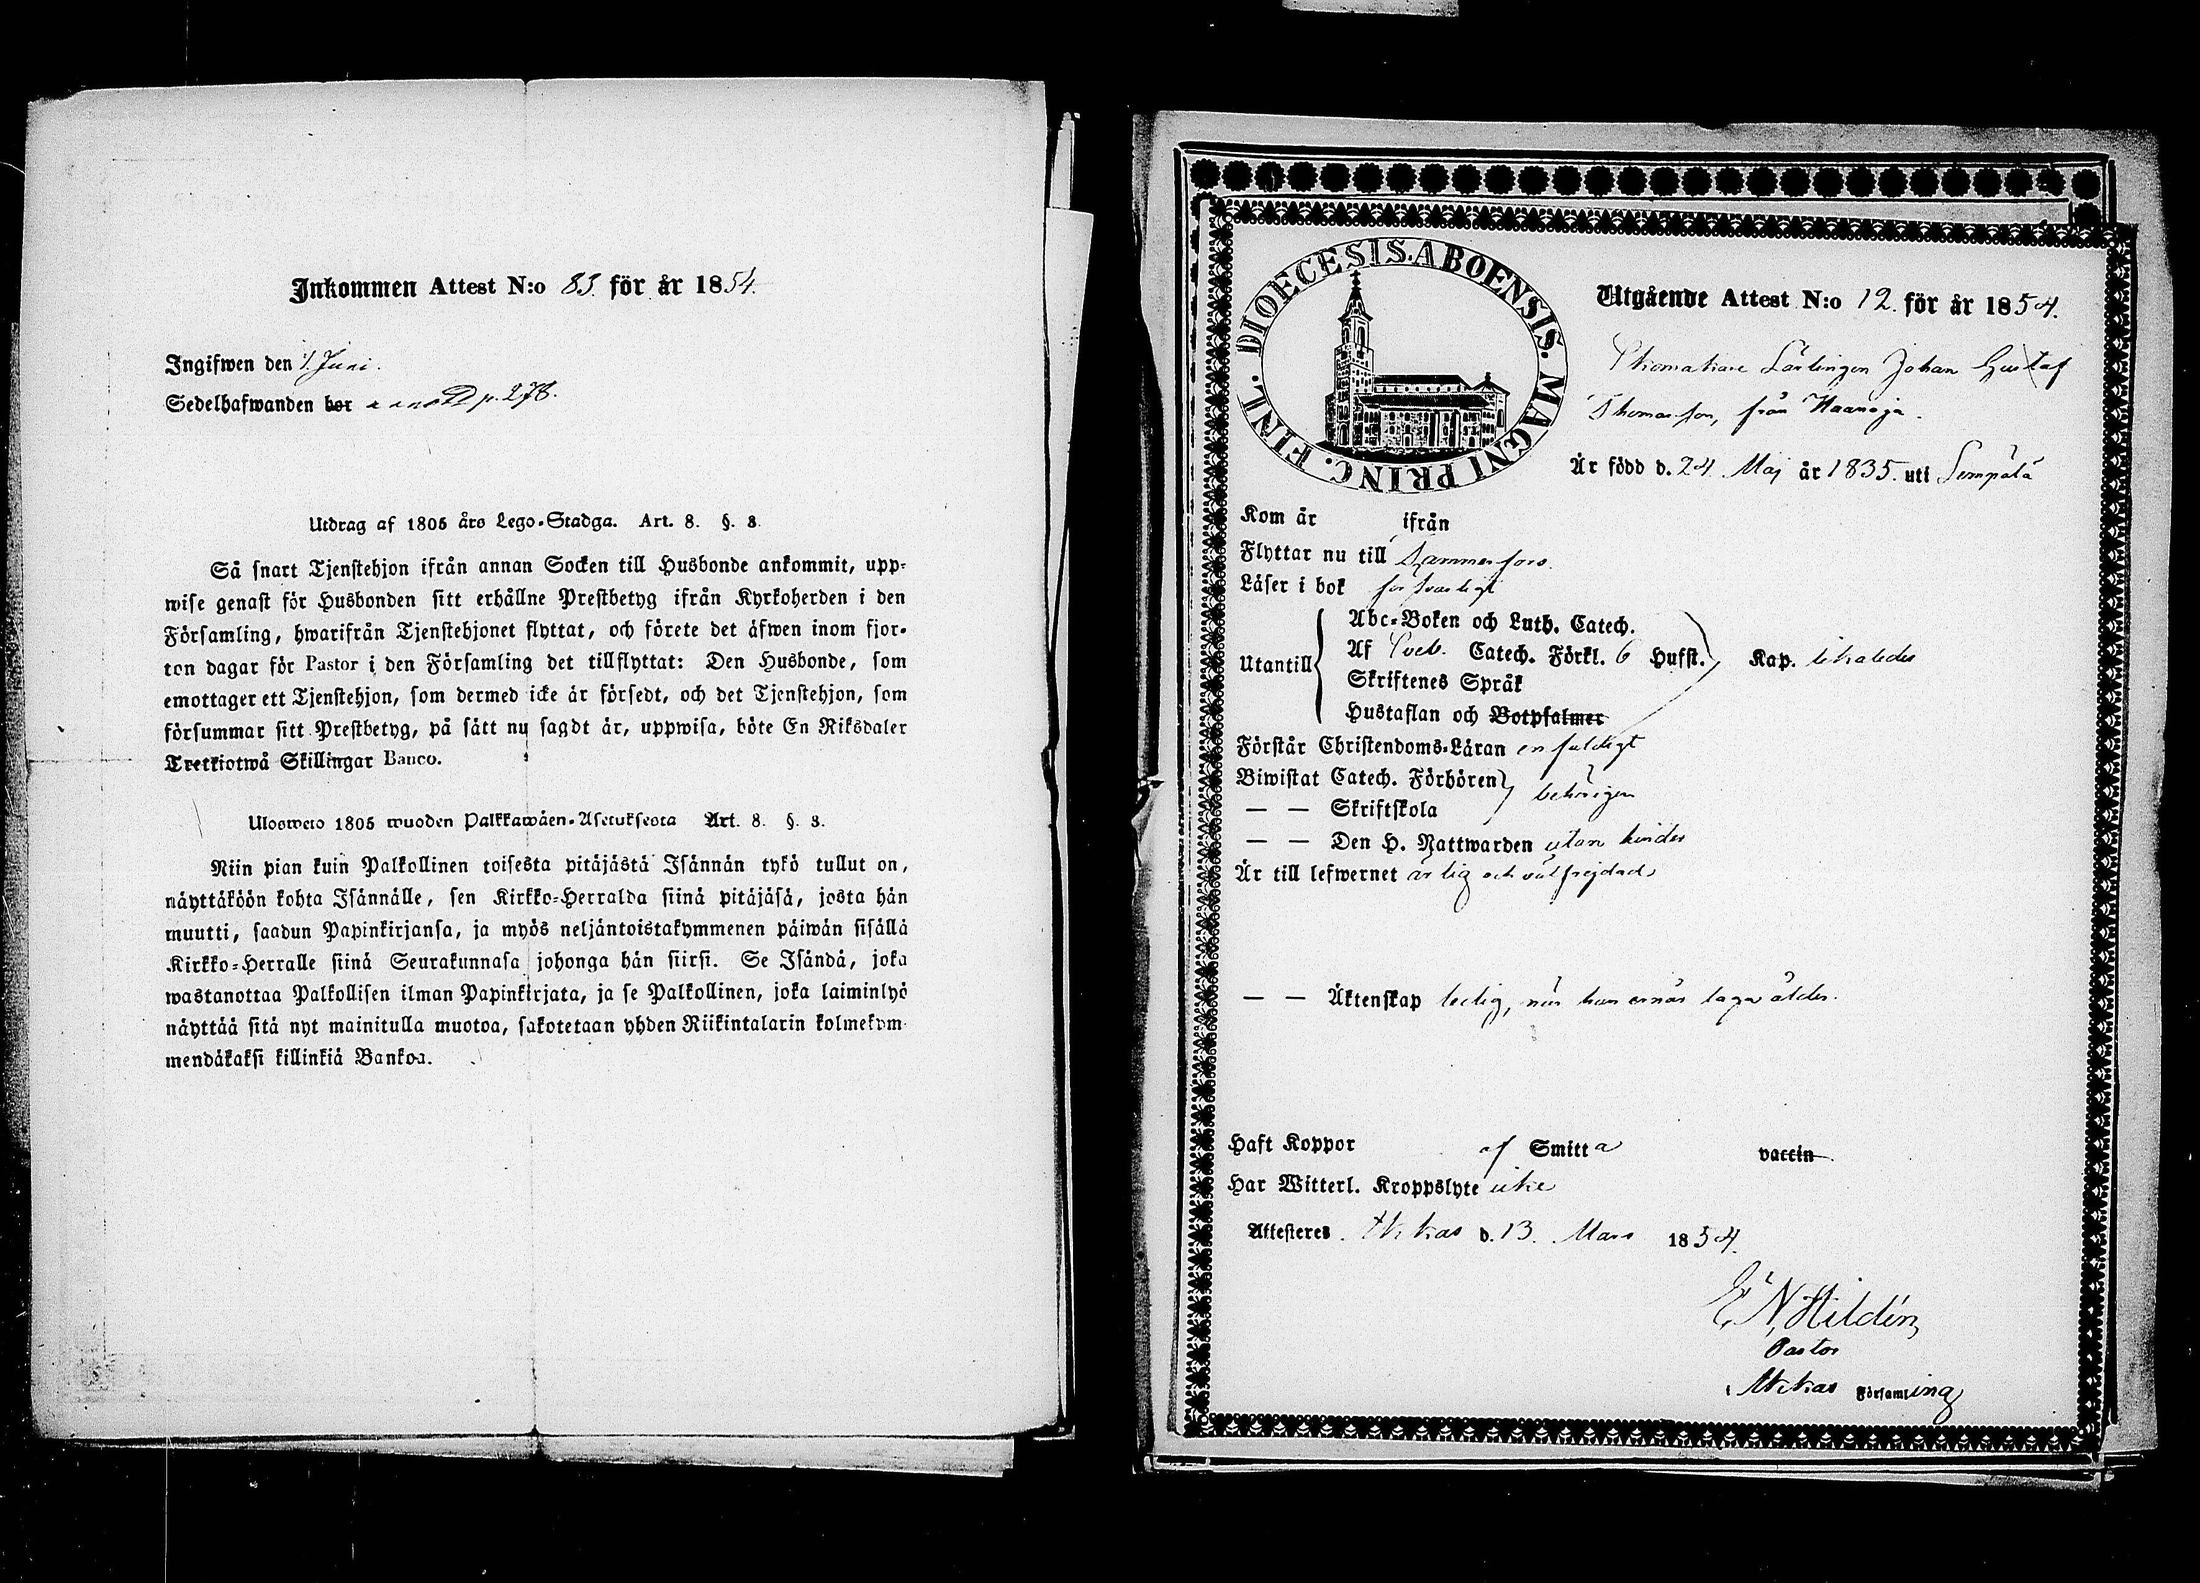 Inkommen Attest N:o 83. för år 1854.
Ingifwen den 1/ Juni.
Sedelhafwanden bor annot. p. 278.
Utdrag af 1805 års Lego-Stadga. Art. 8. §. 3.
Så snart Tjenstehjon ifrån annan Socken till Husbonde ankommit, upp-
wise genast för Husbonden sitt erhållne Prestbetyg ifrån Kyrkoherden i den
Församling, hwarifrån Tjenstehjonet flyttat, och förete det äfwen inom fjor-
ton dagar för Pastor i den Församling det tillflyttat: Den Husbonde, som
emottager ett Tjenstehjon, som dermed icke är försedt, och det Tjenstehjon, som
försummar sitt Prestbetyg, på sätt nu sagdt är, uppwisa, böte En Riksdaler
Tretkiotwå Skillingar Banco.
Ulosweto 1805 wuoden Palkkawäen-Asetuksesta Art. 8. §. 3.
Niin pian kuin Palkollinen toisesta pitäjästä Isännän tykö tullut on,
näyttäköön kohta Isännälle, sen Kirkko-Herralda siinä pitäjäsä, josta hän
muutti, saadun Papinkirjansa, ja myös neljäntoistakymmenen päiwän sisällä
Kirkko-Herralle siinä Seurakunnasa johonga hän siirsi. Se Isändä, joka
wastanottaa Palkollisen ilman Papinkirjata, ja se Palkollinen, joka laiminlyö
näyttää sitä nyt mainitulla muotoa, sakotetaan yhden Riikintalarin kolmekym-
mendäkaksi killinkiä Bankoa.
DIOECESIS. ABOENSIS. MAGNI PRINC. FINL.
Utgående Attest N:o 12. för år 1854.
Skomakare Lärlingen Johan Gustaf
Thomasson, från Haanoja.
Är född d. 24. Maj år 1835. uti Lempälä
Kom år ifrån
Flyttar nu till Tammerfors.
Läser i bok försvarligt
Abc-Boken och Luth. Catech.
Utantill Af Sveb. Catech. Förkl. 6 Hufst. Kap. likaledes
Skriftenes Språk
Hustaflan och Botpsalmer
Förstår Christendoms-Läran enfaldigt
Biwistat Catech. Förhören behörigen
— — Skriftskola
— — Den H. Nattwarden utan hinder
Är till lefwernet ärlig och välfrejdad
— — Äktenskap ledig, når han ernår laga ålder.
Haft Koppor af Smitta vaccin
Har Witterl. Kroppslyte icke
Attesteres. Akkas d. 13. Mars 1854.
E. N. Hildén,
Pastor
i Akkas Församling